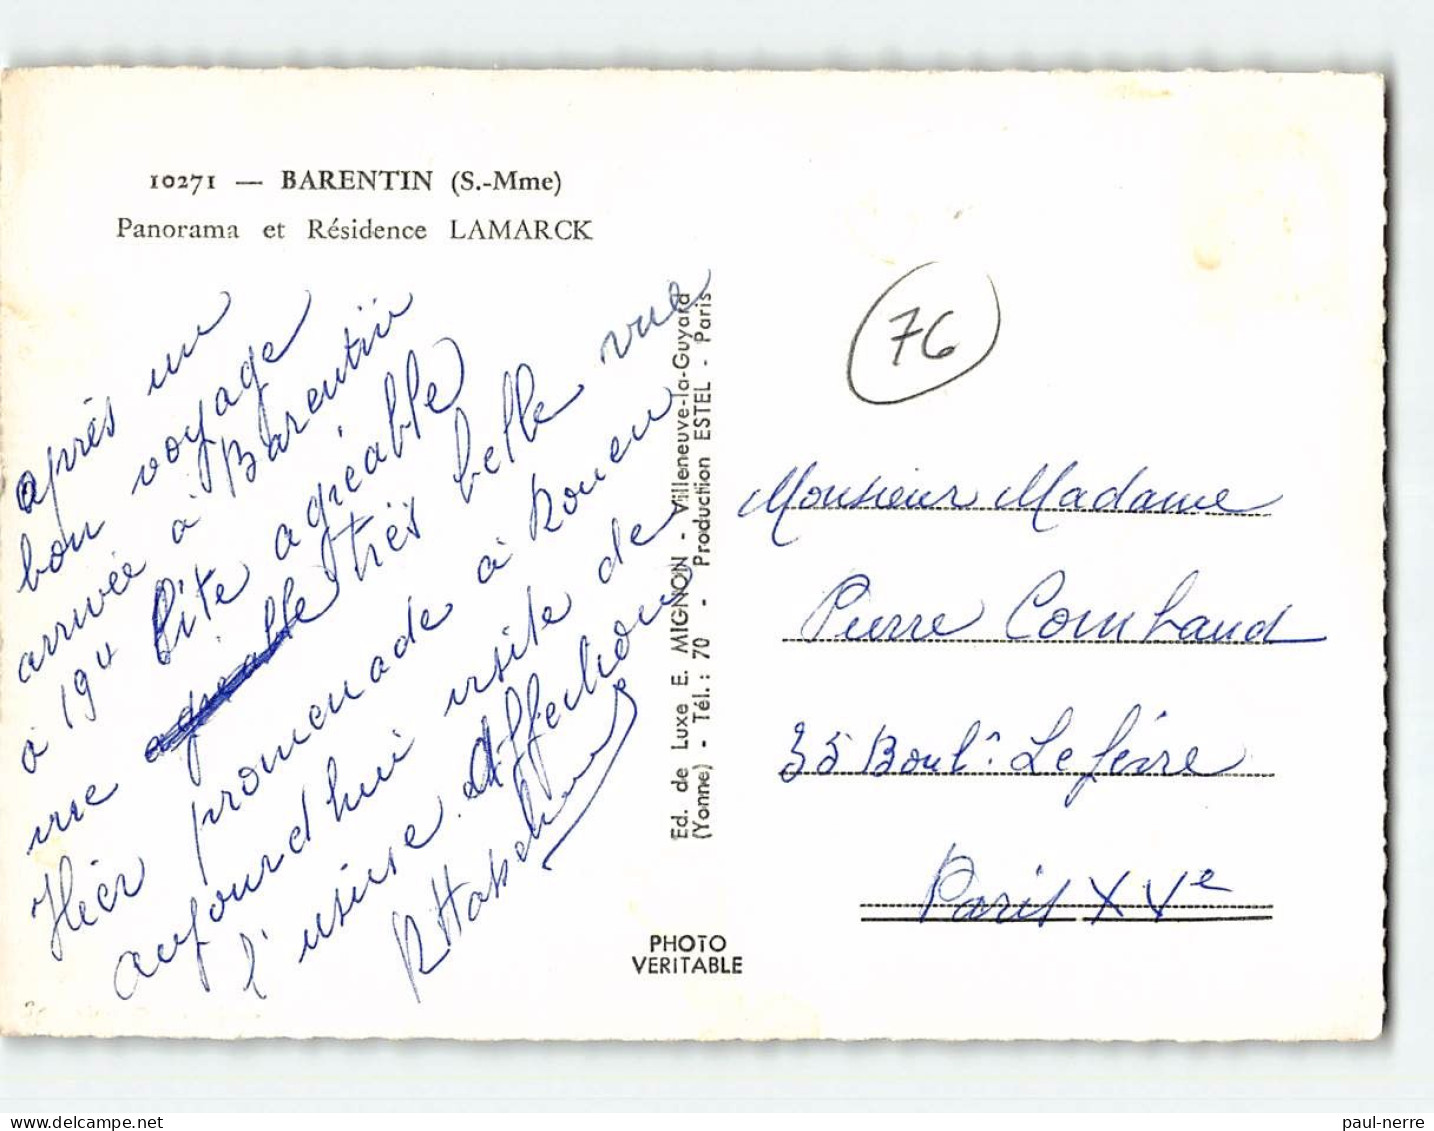 10271 — BARENTIN (S.-Mme)
Panorama et Résidence LAMARCK
après un
bon voyage
arrivée à Barentin
à 19H Gîte agréable
vue agréable très belle vue
Hier promenade à Rouen
aujourd'hui visite de
l'usine. Affections
76
Ed. de Luxe E. MIGNON - Villeneuve-la-Guyard
(Yonne) - Tél.: 70 - Production ESTEL - Paris
PHOTO
VERITABLE
Monsieur Madame
Pierre Combaud
35 Boul. Lefèvre
Paris XVe
paul-nerre